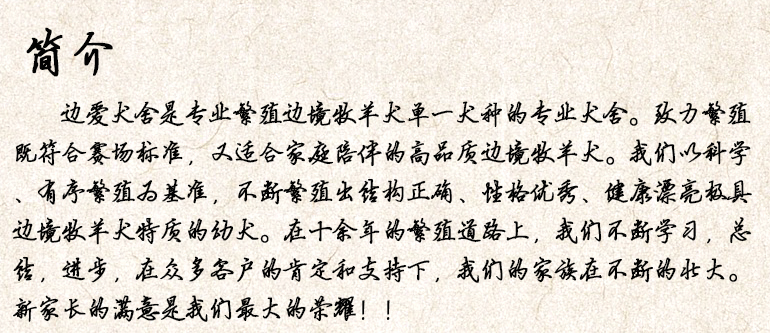 简介
边爱犬舍是专业繁殖边境牧羊犬单一犬种的专业犬舍。致力繁殖
既符合赛场标准，又适合家庭陪伴的高品质边境牧羊犬。我们以科学
、有序繁殖为基准，不断繁殖出结构正确、性格优秀、健康漂亮极具
边境牧羊犬特质的幼犬。在十余年的繁殖道路上，我们不断学习，总
结，进步，在众多客户的肯定和支持下，我们的家族在不断的壮大。
新家长的满意是我们最大的荣耀！！